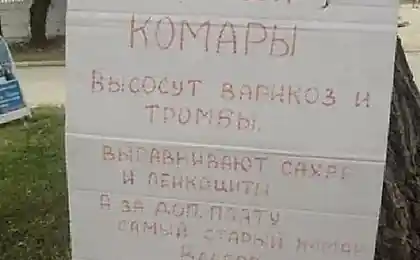 КОМАРЫ
ВЫСОСУТ ВАРИКОЗ И
ТРОМБЫ.
ВЫРАВНИВАЮТ САХАР
И ЛЕЙКОЦИТЫ
А ЗА ДОП. ПЛАТУ
САМЫЙ СТАРЫЙ КОМАР